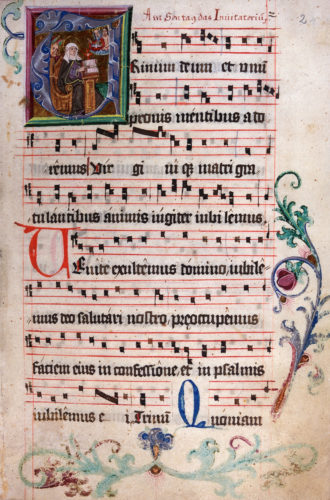 Am Sontag das Inuitatoriū 2
TRinum deum et unū
pronis mentibus ado
remus Vir gi ni q3 matri gra
tulantibus animis iugiter iubilemus
VEnite exultemus domino, iubile
mus deo salutari nostro, preoccupemus
faciem eius in confessione, et in psalmis
iubilemus e i. Trinū Quoniam